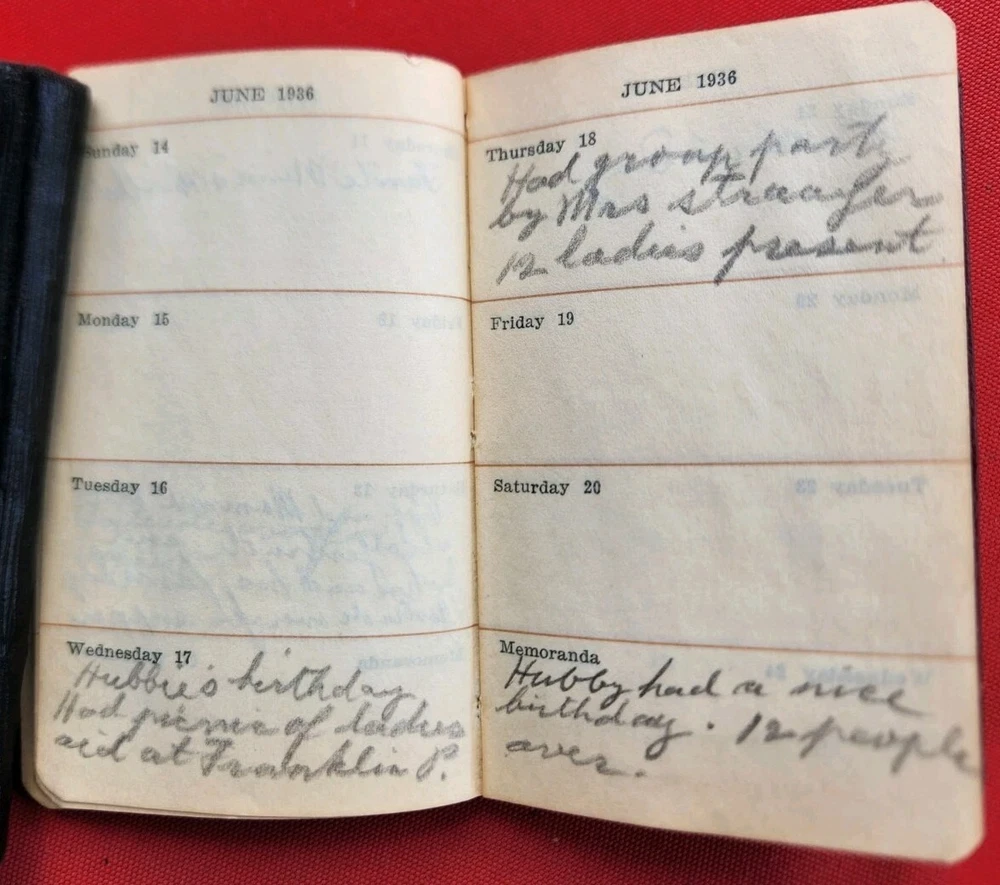 JUNE 1936
Sunday 14
Monday 15
Tuesday 16
Wednesday 17
Hubbie's birthday
Had picnic of ladies
aid at Franklin P.
JUNE 1936
Thursday 18
Had group party
by Mrs
12 ladies present.
Friday 19
Saturday 20
Memoranda
Hubby had a nice
birthday. 12 people
over.